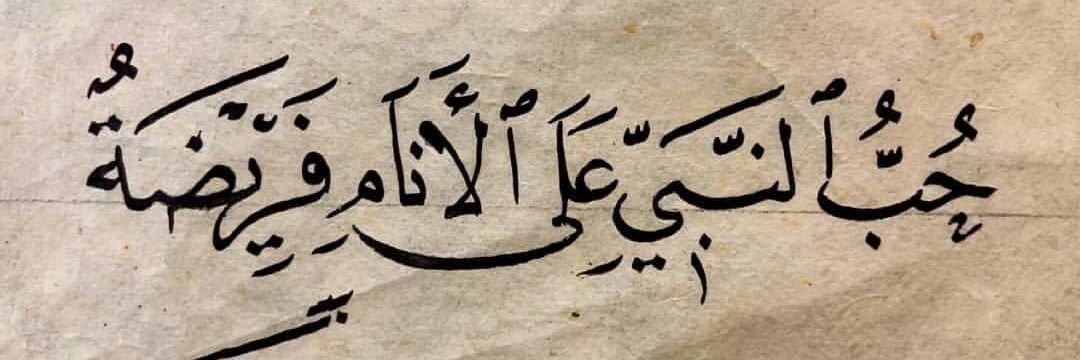 حُبُّ ٱلنَّبِيِّ عَلَى ٱلْأَنَامِ فَرِيْضَةٌ